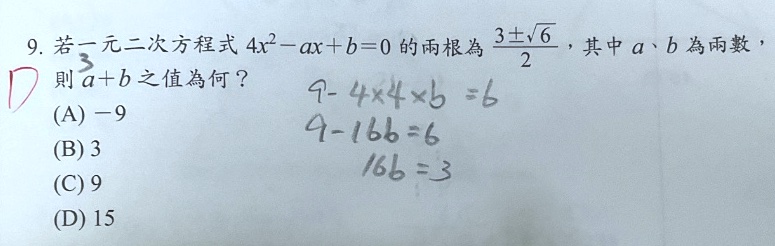 9. 若一元二次方程式 4x²−ax+b=0 的兩根為 (3±√6)/2，其中 a、b 為兩數，
3
D 則 a+b 之值為何？
9-4×4×b=6
(A) −9
9-16b=6
(B) 3
16b=3
(C) 9
(D) 15